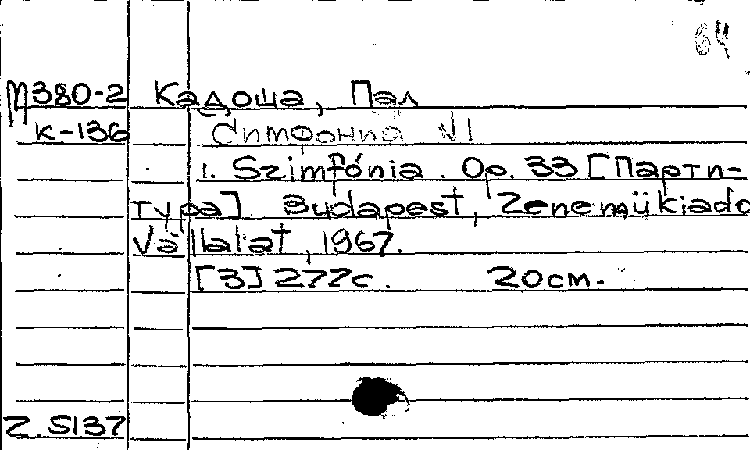 64
М380-2 Кадоша, Пал
К-136 Симфониа №1
1. Szimfónia. Op. 33 [Парти-
тура] Budapest, Zeneműkiado
Vállalat, 1967.
[3] 277с. 20см.
Z.5137